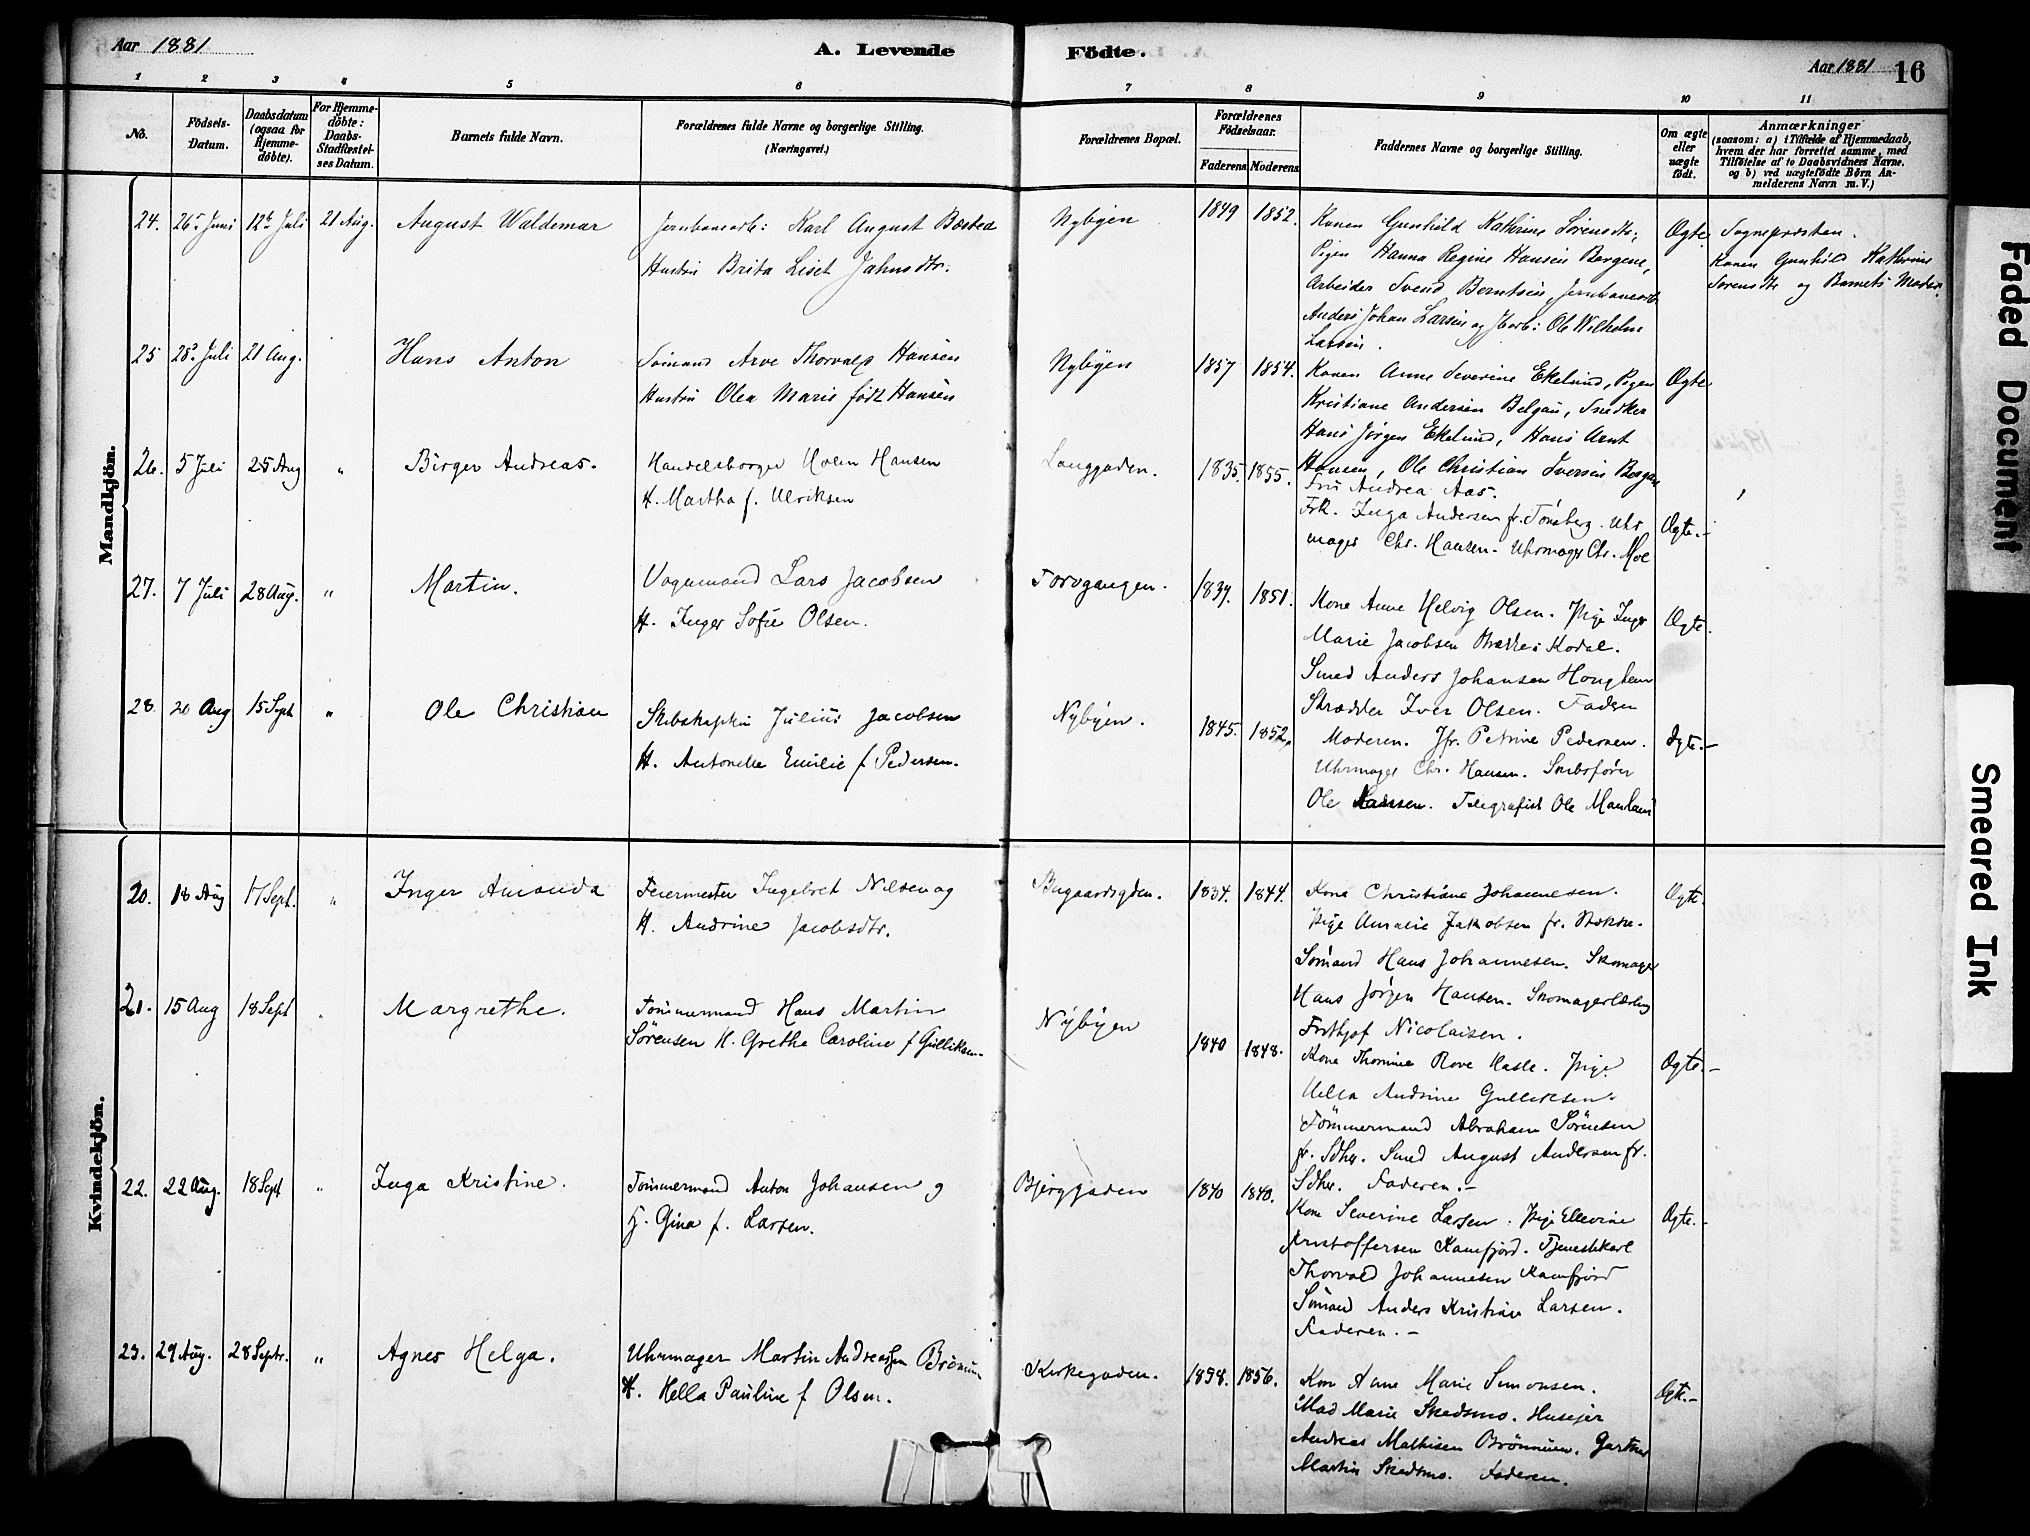 Aar 1881
A. Levende
Födte.
Aar 1881
16
1 2 3 4 5 6 7 8 9 10 11
No.
Födsels-
Datum.
Daabsdatum
(ogsaa for
Hjemme-
döbte).
For Hjemme-
döbte:
Daabs-
Stadfæstel-
ses Datum.
Barnets fulde Navn.
Forældrenes fulde Navne og borgerlige Stilling.
(Næringsvei.)
Forældrenes Bopæl.
Forældrenes
Födselsaar.
Faderens Moderens
Faddernes Navne og borgerlige Stilling.
Om ægte
eller
uægte
født.
Anmærkninger
(saasom: a) i Tilfælde af Hjemmedaab,
hvem der har forrettet samme, med
Tilföielse af to Daabsvidners Navne.
og b) ved uægtefödte Börn An-
melderens Navn m. V.)
Mandkjön.
24. 26 Juni 12 Juli 21 Aug. August Waldemar
Jernbanearb: Karl August Bæsted
Hustru Brita Liset Jahnsdtr.
Nybyen 1849 1852.
Konen Gunhild Kathrine Sørensdtr,
Pigen Hanna Regine Hansen Bergene,
Arbeider Svend Berntsen, Jernbanearb
Anders Johan Larsen og Jbarb: Ole Wilhelm
Larsen.
Ægte
Sognepresten.
Konen Gunhild Kathrine
Sørensdtr og Barnets Moder.
25 28 Juli 21 Aug. Hans Anton
Sømand Arve Thorvald Hansen
Hustru Olea Marie født Hansen
Nybyen 1857 1854.
Konen Anne Severine Ekelund, Pigen
Kristiane Andersen Belgau, Snedker
Hans Jørgen Ekelund, Hans Arnt
Hansen, Ole Christian Iversen Bergan
Ægte
26. 5 Juli 25 Aug " Birger Andreas.
Handelsborger Holm Hansen
H. Martha f. Ulriksen
Langgaden. 1835. 1855.
Fru Andrea Aas.
Frk. Inga Andersen fr. Tønsberg. Uhr
mager Chr. Hansen. Uhrmager Chr. Moe
Ægte.-
27. 7 Juli 28 Aug. " Martin.
Vognmand Lars Jacobsen
H. Inger Sofie Olsen.
Torvgangen. 1839. 1851.
Kone Anne Helvig Olsen. Pige Inger
Marie Jacobsen Kodal.
Smed Anders Johansen
Skrædder Iver Olsen. Faderen
Ægte.
28. 20 Aug 15 Sept " Ole Christian
Skibskaptein Julius Jacobsen
H. Antonette Emilie f Pedersen.
Nybyen. 1845. 1852.
Moderen. Jfr. Petrine Pedersen.
Uhrmager Chr. Hansen. Skibsfører
Ole Hansen. Telegrafist Ole
Ægte.-
Kvindekjön.
20. 18 Aug 17 Sept. " Inger Amanda
Feiermester Ingebret Nilsen og
H. Andrine Jacobsdtr.
Bugaardsgden. 1834. 1844.
Kone Christiane Johannesen.
Pige Amalie Jakobsen fr. Stokke.
Sømand Hans Johannesen. Skomager
Hans Jørgen Hansen. Skomagerlærling
Frithjof Nicolaisen.
Ægte.
21. 15 Aug 18 Sept " Margrethe.
Tømmermand Hans Martin
Sørensen H. Grethe Caroline f Gulliksen.
Nybyen 1840 1848.
Kone Thomine Rove Hasle. Pige
Hella Andrine Gulliksen.
Tømmermand Abraham Sørensen
fr. Sdhr. Smed August Andersen fr.
Sdhr. Faderen.-
Ægte.-
22. 22 Aug. 18 Sept " Inga Kristine.
Tømmermand Anton Johansen og
H. Gina f. Larsen.
Bjerggaden 1840 1840.
Kone Severine Larsen. Pige Ellevine
Kristoffersen Kamfjord. Tjenestekarl
Thorvald Johannesen Kamfjord
Sømand Anders Kristian Larsen.
Faderen.-
Ægte.-
23. 29 Aug. 28 Septr. " Agnes Helga.
Uhrmager Martin Andreassen Brönnum
H. Hella Pauline f Olsen.
Kirkegaden. 1858. 1856.
Kone Anne Marie Simonsen.
Mad Marie Skedsmo. Huseier
Andreas Mathisen Brönnum. Gartner
Martin Skedsmo. Faderen.
Ægte.-
Faded Document
Smeared Ink